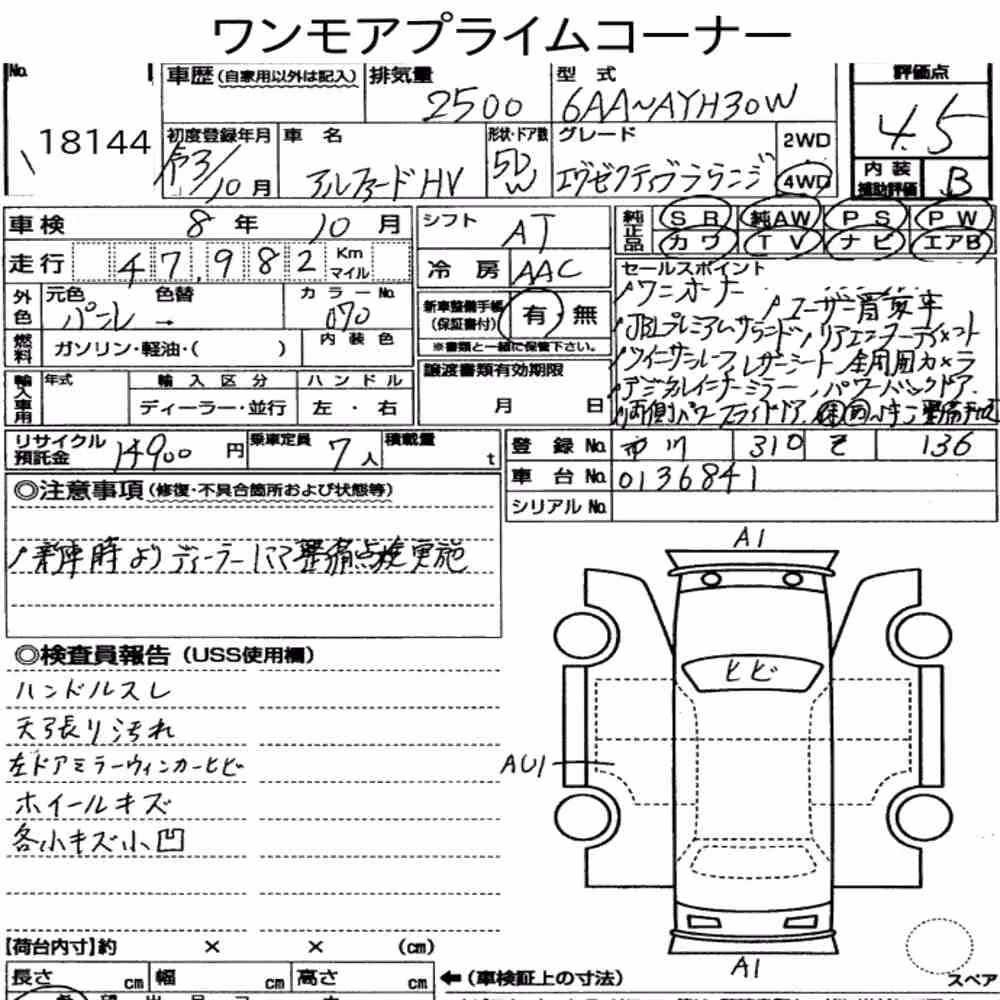 ワンモアプライムコーナー
No. 18144
車歴(自家用以外は記入)
排気量 2500
型式 6AA~AYH30W
評価点 4.5
初度登録年月 令3/10月
車名 アルファードHV
形状・ドア数 5D W
グレード エグゼクティブラウンジ
2WD
4WD
内装補助評価 B
車検 8年 10月
シフト AT
純正品 SR 純AW PS PW
カワ TV ナビ エアB
走行 47,982 Km マイル
冷房 AAC
外色 元色 パール 色替 → カラーNo. 070
新車整備手帳(保証書付) 有 無
※書類と一緒に保管下さい。
燃料 ガソリン・軽油・( ) 内装色
セールスポイント
ワンオーナー ユーザー買取車
JBLプレミアムサラウンド リアエンターテイメント
ツインサンルーフ レザーシート 全周囲カメラ
デジタルインナーミラー パワーバックドア
両側パワースライドドア
輸入車用 年式 輸入区分 ハンドル
ディーラー・並行 左・右
譲渡書類有効期限
月 日
リサイクル預託金 14900円 乗車定員 7人 積載量 t
登録No. 市川 310 そ 136
車台No. 0136841
シリアルNo.
◎注意事項(修復・不具合箇所および状態等)
新車時よりディーラーにて整備点検実施
◎検査員報告(USS使用欄)
ハンドルスレ
天張り汚れ
左ドアミラーウィンカーヒビ
ホイールキズ
各小キズ小凹
A1
ヒビ
AU1
A1
スペア
【荷台内寸】約 × × (cm)
長さ cm 幅 cm 高さ cm
←(車検証上の寸法)